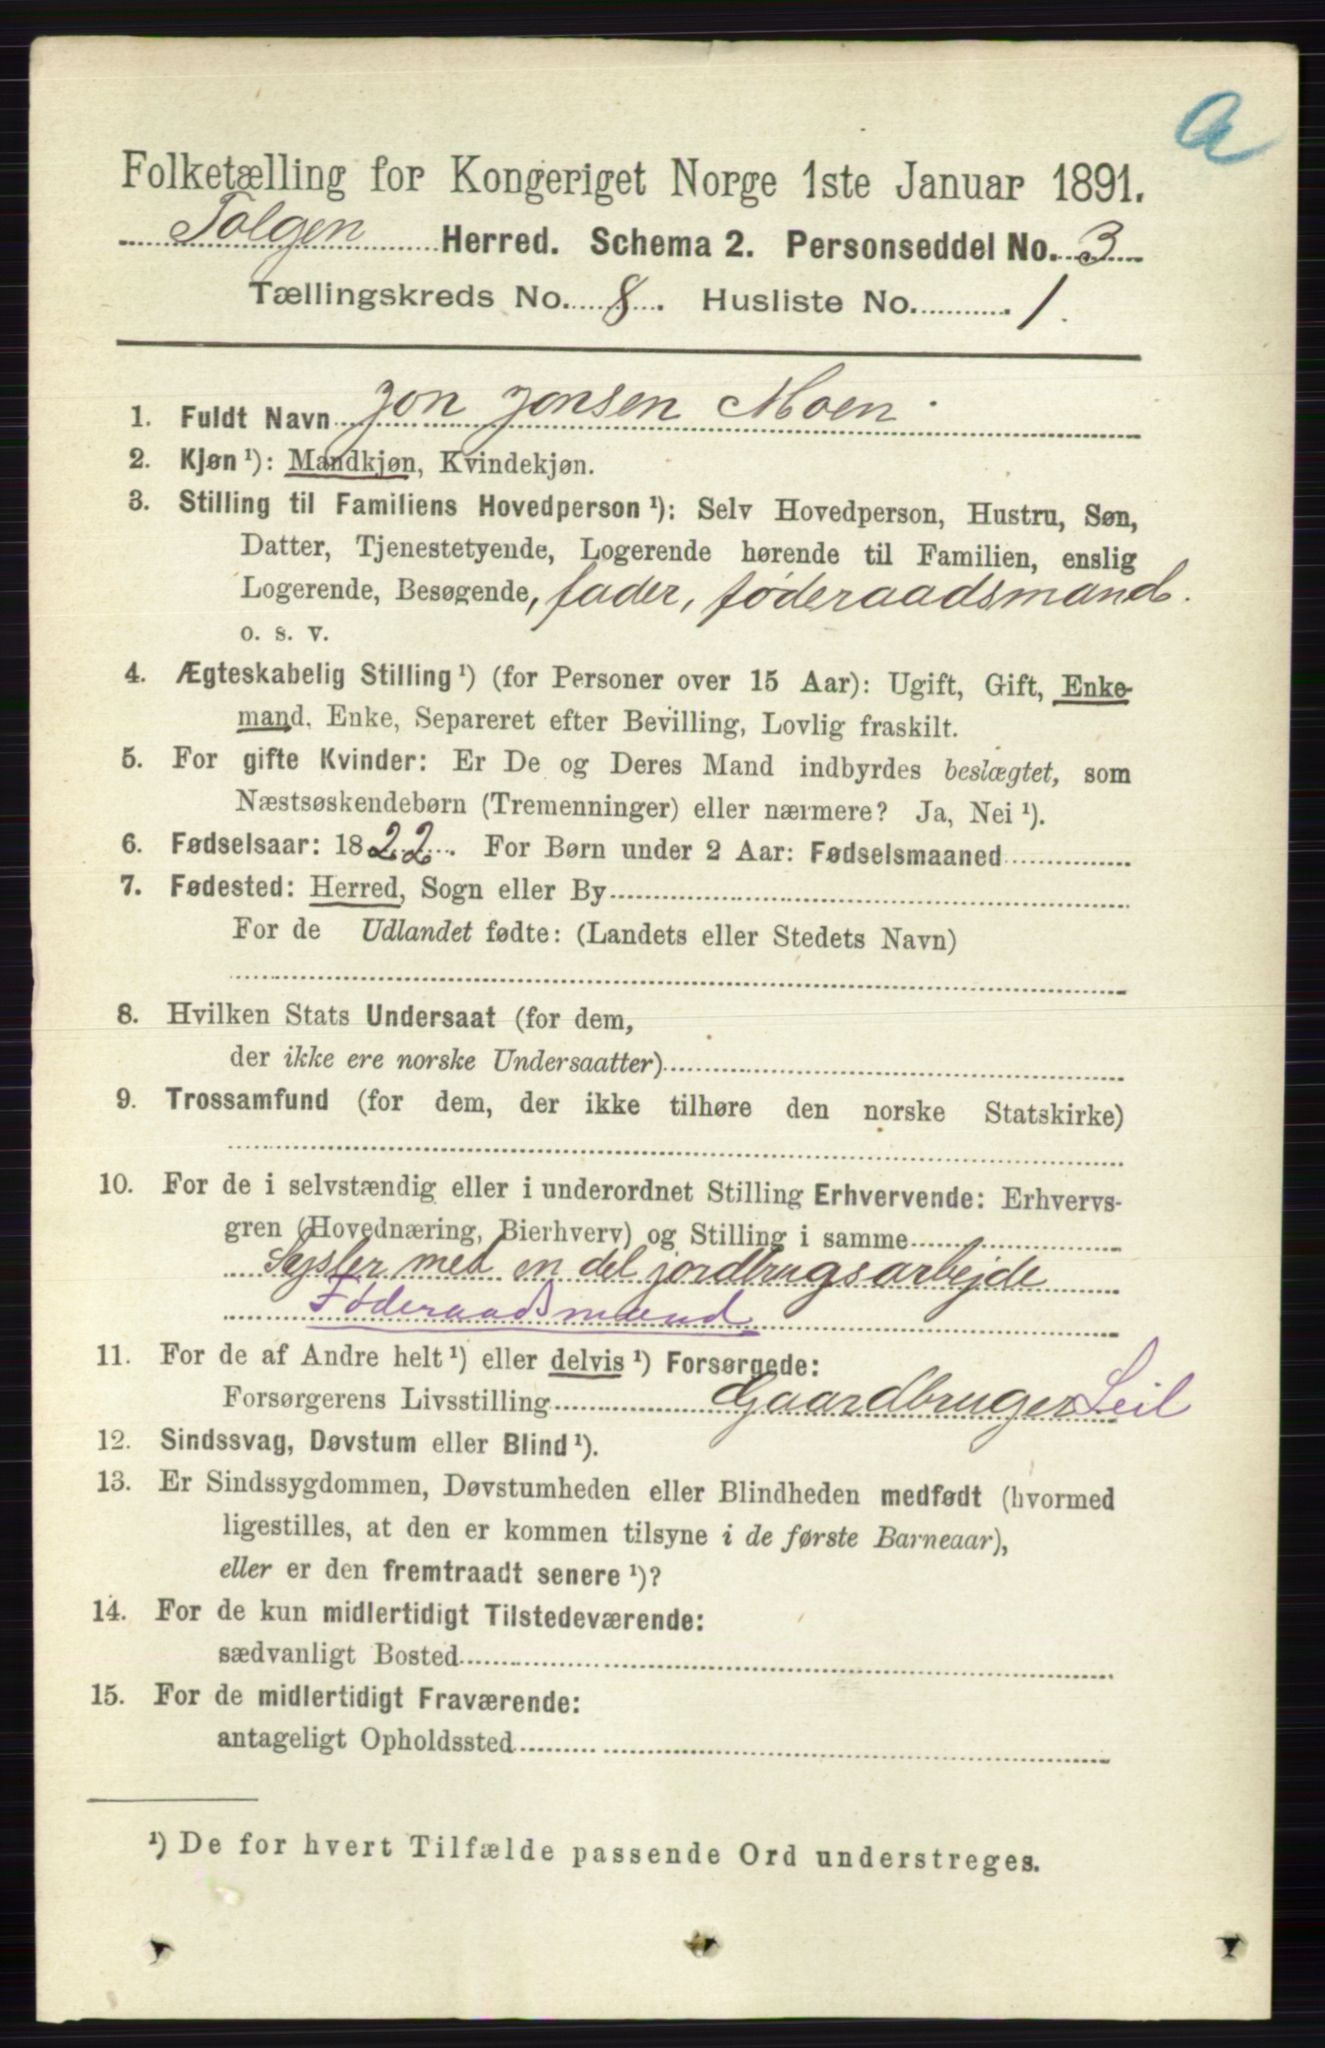 a
Folketælling for Kongeriget Norge 1ste Januar 1891.
Tolgen Herred. Schema 2. Personseddel No. 3
Tællingskreds No. 8. Husliste No. 1.
1. Fuldt Navn Jon Jonsen Moen.
2. Kjøn ¹): Mandkjøn, Kvindekjøn.
3. Stilling til Familiens Hovedperson ¹): Selv Hovedperson, Hustru, Søn,
Datter, Tjenestetyende, Logerende hørende til Familien, enslig
Logerende, Besøgende, fader, føderaadsmand.
o. s. v.
4. Ægteskabelig Stilling ¹) (for Personer over 15 Aar): Ugift, Gift, Enke-
mand, Enke, Separeret efter Bevilling, Lovlig fraskilt.
5. For gifte Kvinder: Er De og Deres Mand indbyrdes beslægtet, som
Næstsøskendebørn (Tremenninger) eller nærmere? Ja, Nei ¹).
6. Fødselsaar: 1822. For Børn under 2 Aar: Fødselsmaaned
7. Fødested: Herred, Sogn eller By
For de Udlandet fødte: (Landets eller Stedets Navn)
8. Hvilken Stats Undersaat (for dem,
der ikke ere norske Undersaatter)
9. Trossamfund (for dem, der ikke tilhøre den norske Statskirke)
10. For de i selvstændig eller i underordnet Stilling Erhvervende: Erhvervs-
gren (Hovednæring, Bierhverv) og Stilling i samme
Sysler med en del jordbrugsarbejde
Føderaadsmand
11. For de af Andre helt ¹) eller delvis ¹) Forsørgede:
Forsørgerens Livsstilling Gaardbruger Leil
12. Sindssvag, Døvstum eller Blind ¹).
13. Er Sindssygdommen, Døvstumheden eller Blindheden medfødt (hvormed
ligestilles, at den er kommen tilsyne i de første Barneaar),
eller er den fremtraadt senere ¹)?
14. For de kun midlertidigt Tilstedeværende:
sædvanligt Bosted
15. For de midlertidigt Fraværende:
antageligt Opholdssted
¹) De for hvert Tilfælde passende Ord understreges.